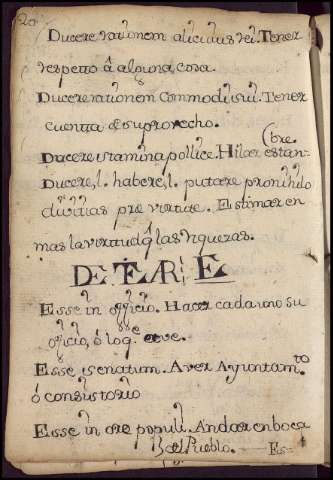 Ducere rationem alicuius rei. Tener
respetto á alguna cosa.
Ducere rationem Commodi sui. Tener
cuenta de su provecho.
Ducere stamina pollice. Hilar estan-
(bre
Ducere, l. habere, l. putare pro nihilo
divitias præ virtute. Estimar en
mas la virtud q̃ las riquezas.
DE
Esse in officio. Hacer cada uno su
oficio, ó loq. deve.
Esse senatum. Aver Ayuntam.to
ó consistorio
Esse in ore populi. Andar en boca
del Pueblo.
Es-